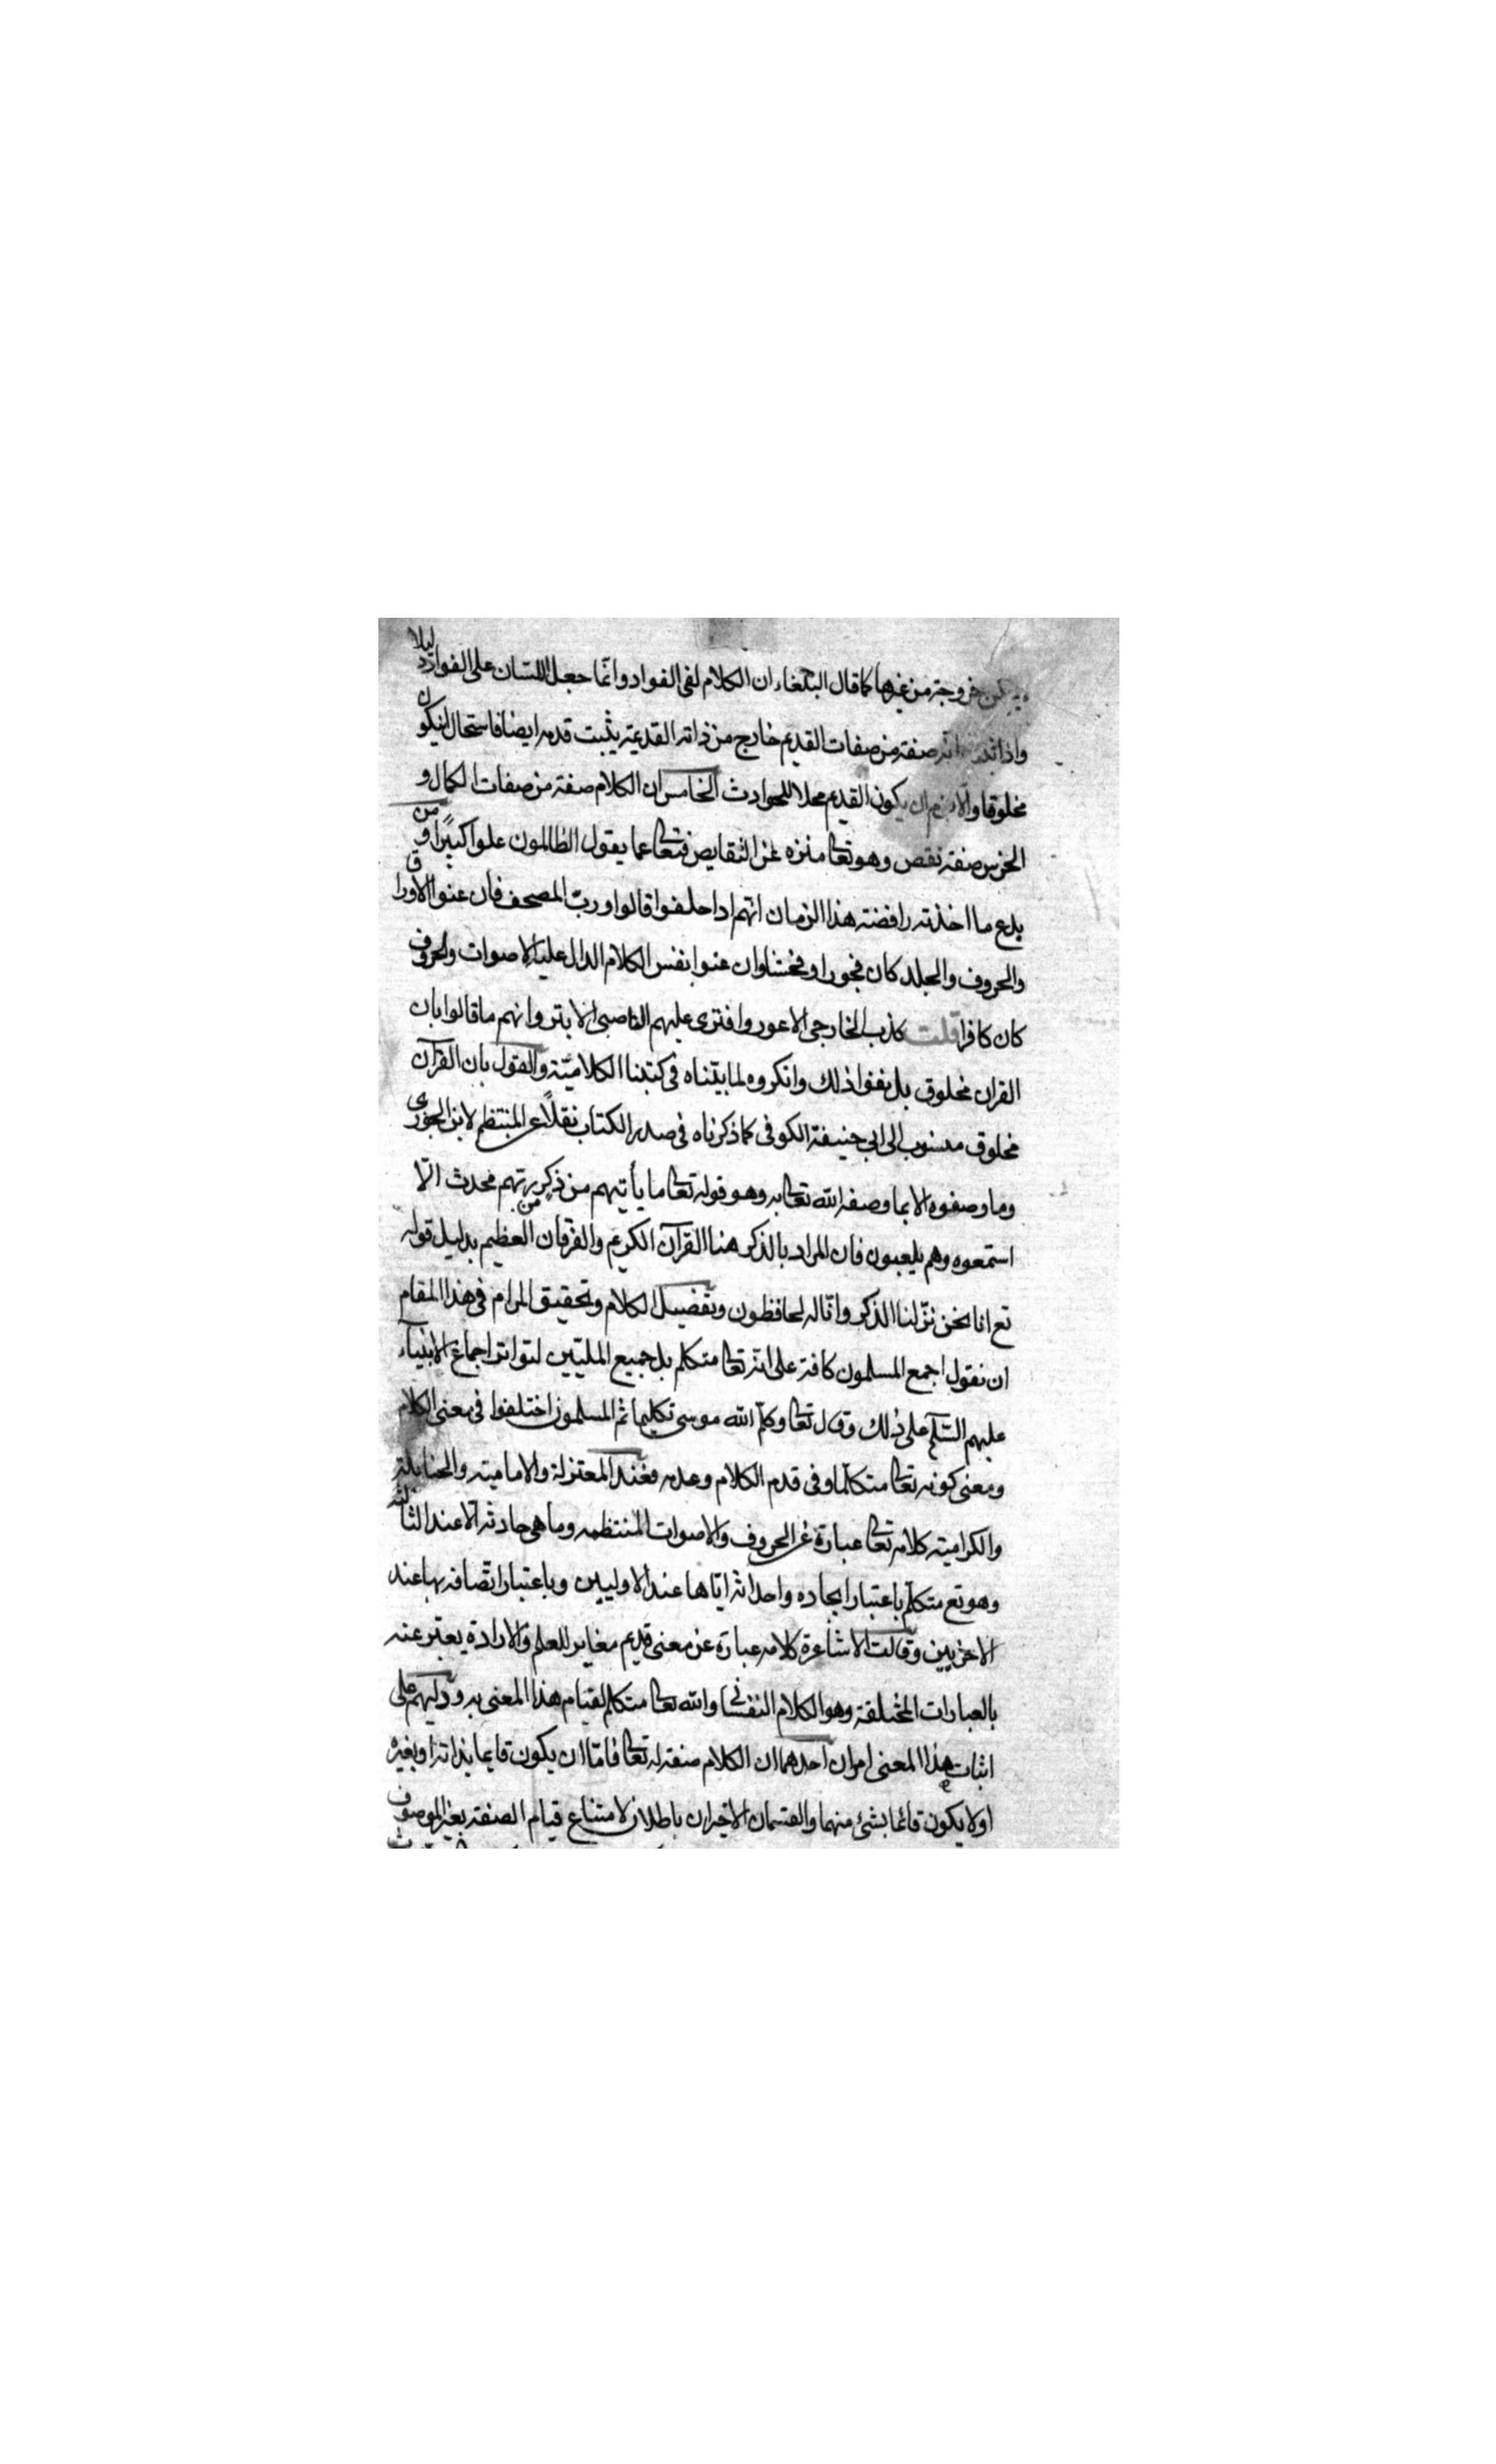 يمكن خروجه من غيرها كما قال البلغاء ان الكلام لفى الفواد وانما جعل اللسان على الفواد دليلا
واذا ثبت انه صفة من صفات القديم خارج من ذاته القديمة يثبت قدمه ايضا فاستحال ان يكون
مخلوقا والا لزم ان يكون القديم محلا للحوادث الخامس ان الكلام صفة من صفات الكمال و
الخرس صفة نقص وهو تعالى منزه عن النقايص فتعالى عما يقول الظالمون علوا كبيرا و من
بدع ما اخذته رافضة هذا الزمان انهم اذا حلفوا قالوا ورب المصحف فان عنوا الاوراق
والحروف والجلد كان فجورا وفحشا وان عنوا نفس الكلام الدال عليه الاصوات والحروف
كان كافرا قلت كذب الخارجى الاعور وافترى عليهم الناصبى الابتر وانهم ما قالوا بان
القران مخلوق بل نفوا ذلك وانكروه لما بيناه فى كتبنا الكلامية والقول بان القرآن
مخلوق منسوب الى ابى حنيفة الكوفى كما ذكرناه فى صدر الكتاب نقلاً عن المنتظم لابن الجوزى
وما وصفوه الا بما وصفه الله تعالى به وهو قوله تعالى ما يأتيهم من ذكر من ربهم محدث الا
استمعوه وهم يلعبون فان المراد بالذكر هنا القرآن الكريم والفرقان العظيم بدليل قوله
تع انا نحن نزلنا الذكر وانا له لحافظون وتفضيل الكلام وتحقيق المرام فى هذا المقام
ان نقول اجمع المسلمون كافة على انه تعالى متكلم بل جميع المليين لتواتر اجماع الانبيآء
عليهم السلم على ذلك وقال تعالى وكلم الله موسى تكليما ثم المسلمون اختلفوا فى معنى الكلام
ومعنى كونه تعالى متكلما وفى قدم الكلام وعدمه فعند المعتزلة والامامية والحنابلة
والكرامية كلامه تعالى عبارة عن الحروف والاصوات المنتظمه وما هى حادثه الا عند الثالثه
وهو تع متكلم باعتبار ايجاده واحداثه اياها عند الاوليين وباعتبار اتصافه بها عند
الاخريين وقالت الاشاعرة كلامه عبارة عن معنى قديم مغاير للعلم والارادة يعبر عنه
بالعبارات المختلفة وهو الكلام النفسانى والله تعالى متكلم لقيام هذا المعنى به ودليهم على
اثبات هذا المعنى امران احدهما ان الكلام صفة له تعالى فاما ان يكون قايما بذاته او بغيره
اولا يكون قائما بشئ منهما والقسمان الاخيران باطلان لامتناع قيام الصفة بغير الموصوف